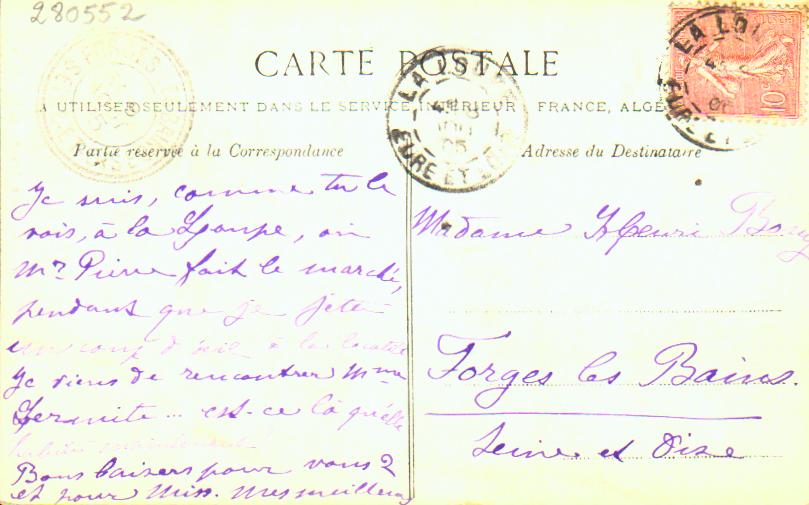 280552
CARTE POSTALE
A UTILISER SEULEMENT DANS LE SERVICE INTERIEUR, FRANCE, ALGÉ
Partie réservée à la Correspondance
Adresse du Destinataire
LA LOU
EURE ET LOIR
05
LA LOU
EURE ET
10c
Je suis, comme tu le
vois, à la Loupe, où
Mr. Pierre fait le marché,
pendant que je jette
un coup d'œil à la localité
Je viens de rencontrer Mme
Lermite... est-ce là qu'elle
habite maintenant
Bons baisers pour vous 2
et pour Miss. Mes meilleurs
Madame Henri
Forges les Bains.
Seine et Oise